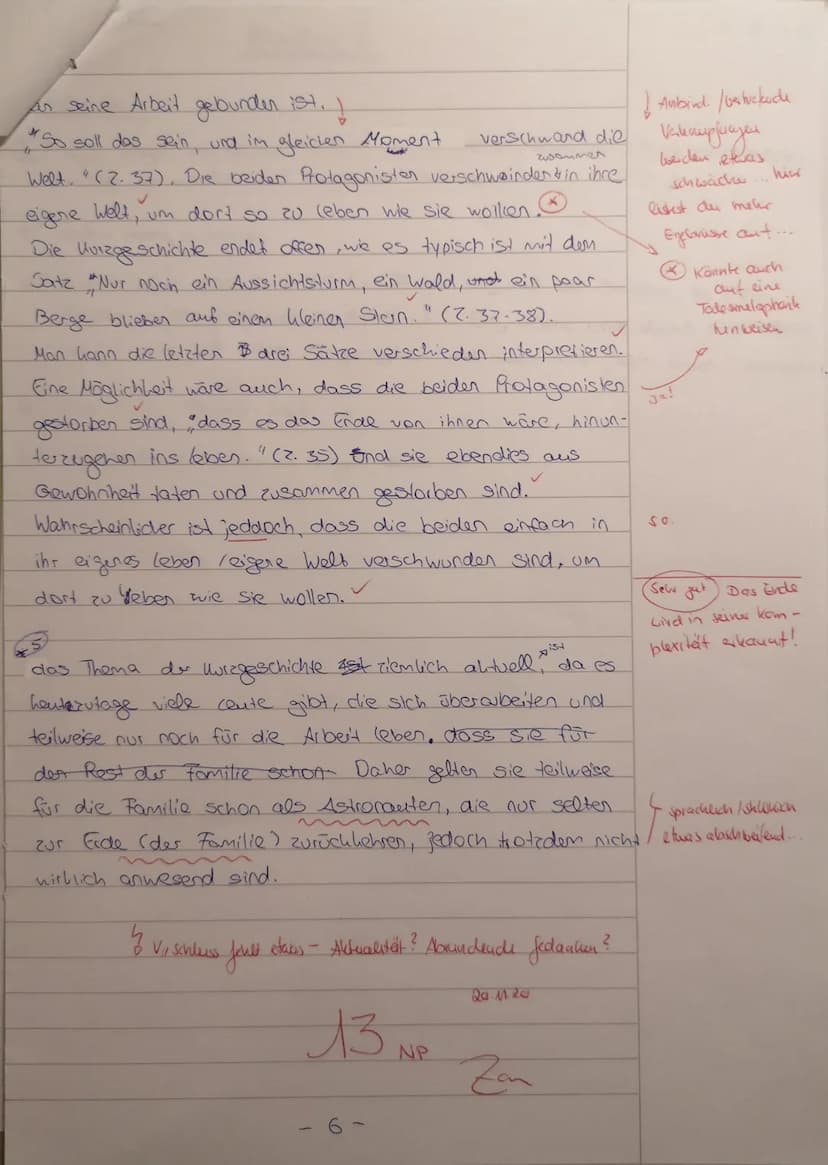 an seine Arbeit gebunden ist.
"So soll das sein, und im gleichen Moment verschwand die
zusammen
Welt." (Z. 37). Die beiden Protagonisten verschwinden in ihre
eigene Welt, um dort so zu leben wie sie wollen.
Die Kurzgeschichte endet offen, wie es typisch ist mit dem
Satz "Nur noch ein Aussichtsturm, ein Wald, und ein paar
Berge blieben auf einem kleinen Stern." (Z. 37-38).
Man kann die letzten drei Sätze verschieden interpretieren.
Eine Möglichkeit wäre auch, dass die beiden Protagonisten
gestorben sind, "dass es das Ende von ihnen wäre, hinun-
terzugehen ins Leben." (Z. 35) Und sie ebendies aus
Gewohnheit taten und zusammen gestorben sind.
Wahrscheinlicher ist jeddoch, dass die beiden einfach in
ihr eigenes Leben / eigene Welt verschwunden sind, um
dort zu leben wie sie wollen.
*5
ist
das Thema der Kurzgeschichte ist ziemlich aktuell, da es
heutzutage viele Leute gibt, die sich überarbeiten und
teilweise nur noch für die Arbeit leben. dass sie für
den Rest der Familie schon Daher gelten sie teilweise
für die Familie schon als Astronauten, die nur selten
zur Erde (der Familie) zurückkehren, jedoch trotzdem nicht
wirklich anwesend sind.
Schluss fehlt etwas - Aktualität? Abrundende Gedanken?
20.11.20
13 NP
- 6 -
Anbind. /
Verknüpfungen
werden etwas
schwächer... hier
listest du mehr
Ergebnisse auf...
Könnte auch
auf eine
Todesmetaphorik
hinweisen
ja!
so.
Sehr gut Das Ende
wird in seiner Kom-
plexität erkannt!
sprachlich / stilistisch
etwas abschweifend...